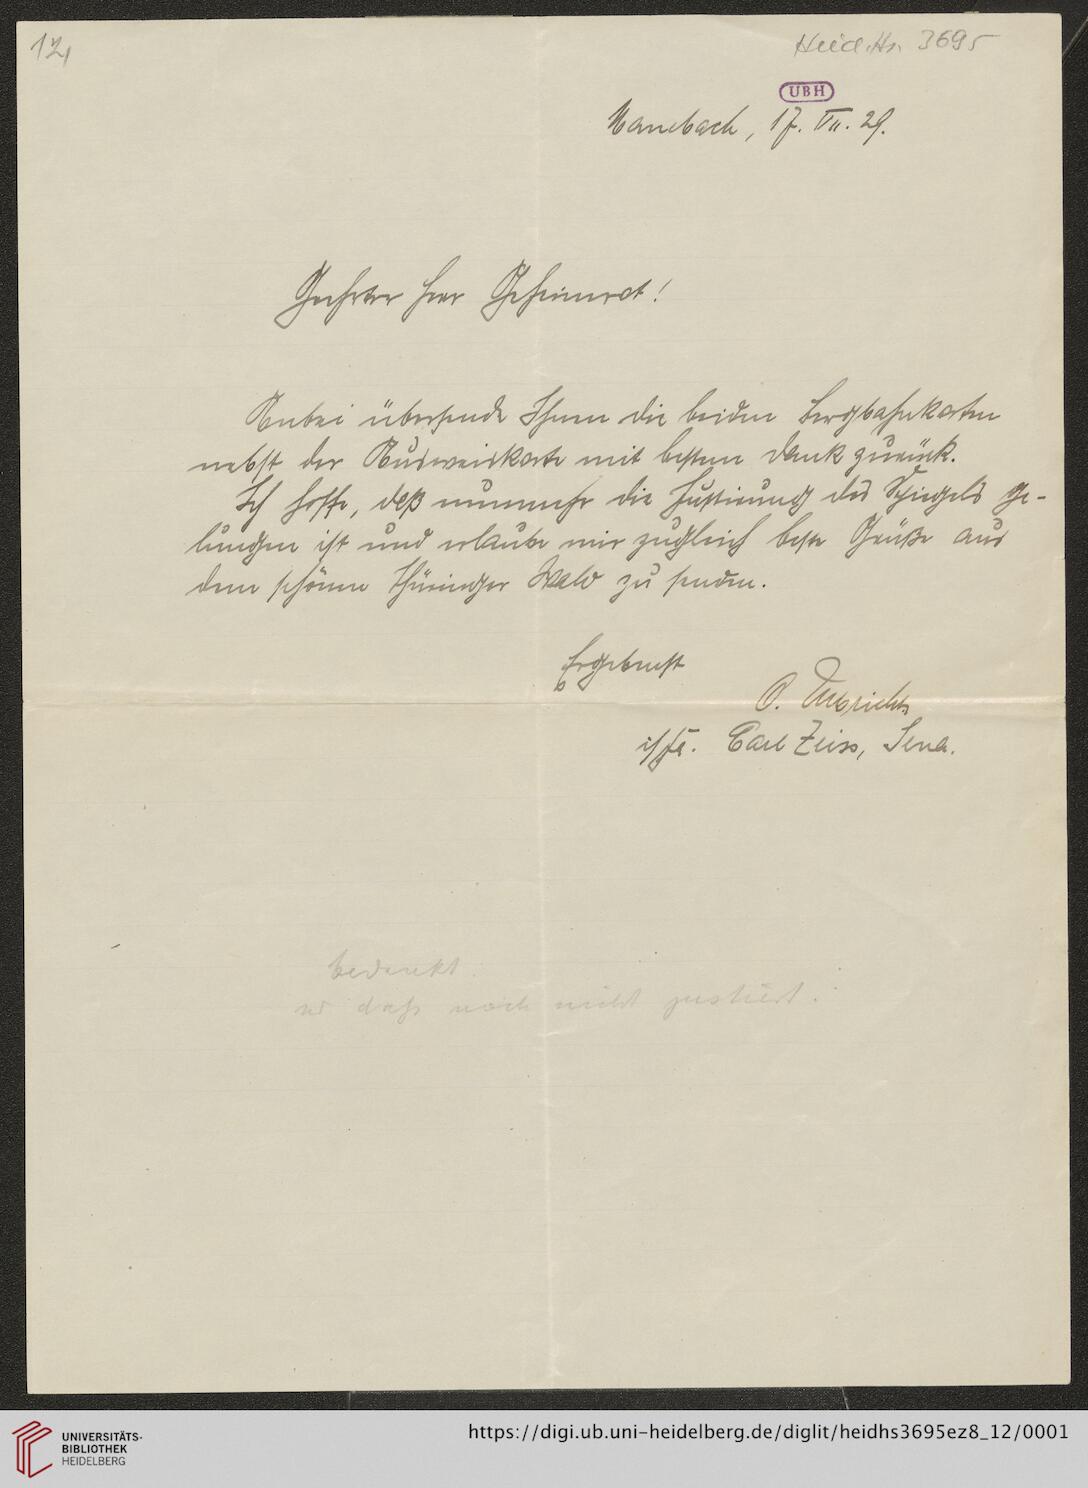 12,
Heid. Hs. 3695
UBH
Manebach, 17. VII. 29.
Geehrter Herr Geheimrat!
Anbei übersende Ihnen die beiden Bergbahnkarten
nebst der Ausweiskarte mit bestem Dank zurück.
Ich hoffe, daß nunmehr die Justierung des Spiegels ge-
lungen ist und erlaube mir zugleich beste Grüße aus
dem schönen Thüringer Wald zu senden.
Ergebenst
O.
i/Fa. Carl Zeiss, Jena.
bedankt.
daß noch nicht justiert.
UNIVERSITÄTS-
BIBLIOTHEK
HEIDELBERG
https://digi.ub.uni-heidelberg.de/diglit/heidhs3695ez8_12/0001